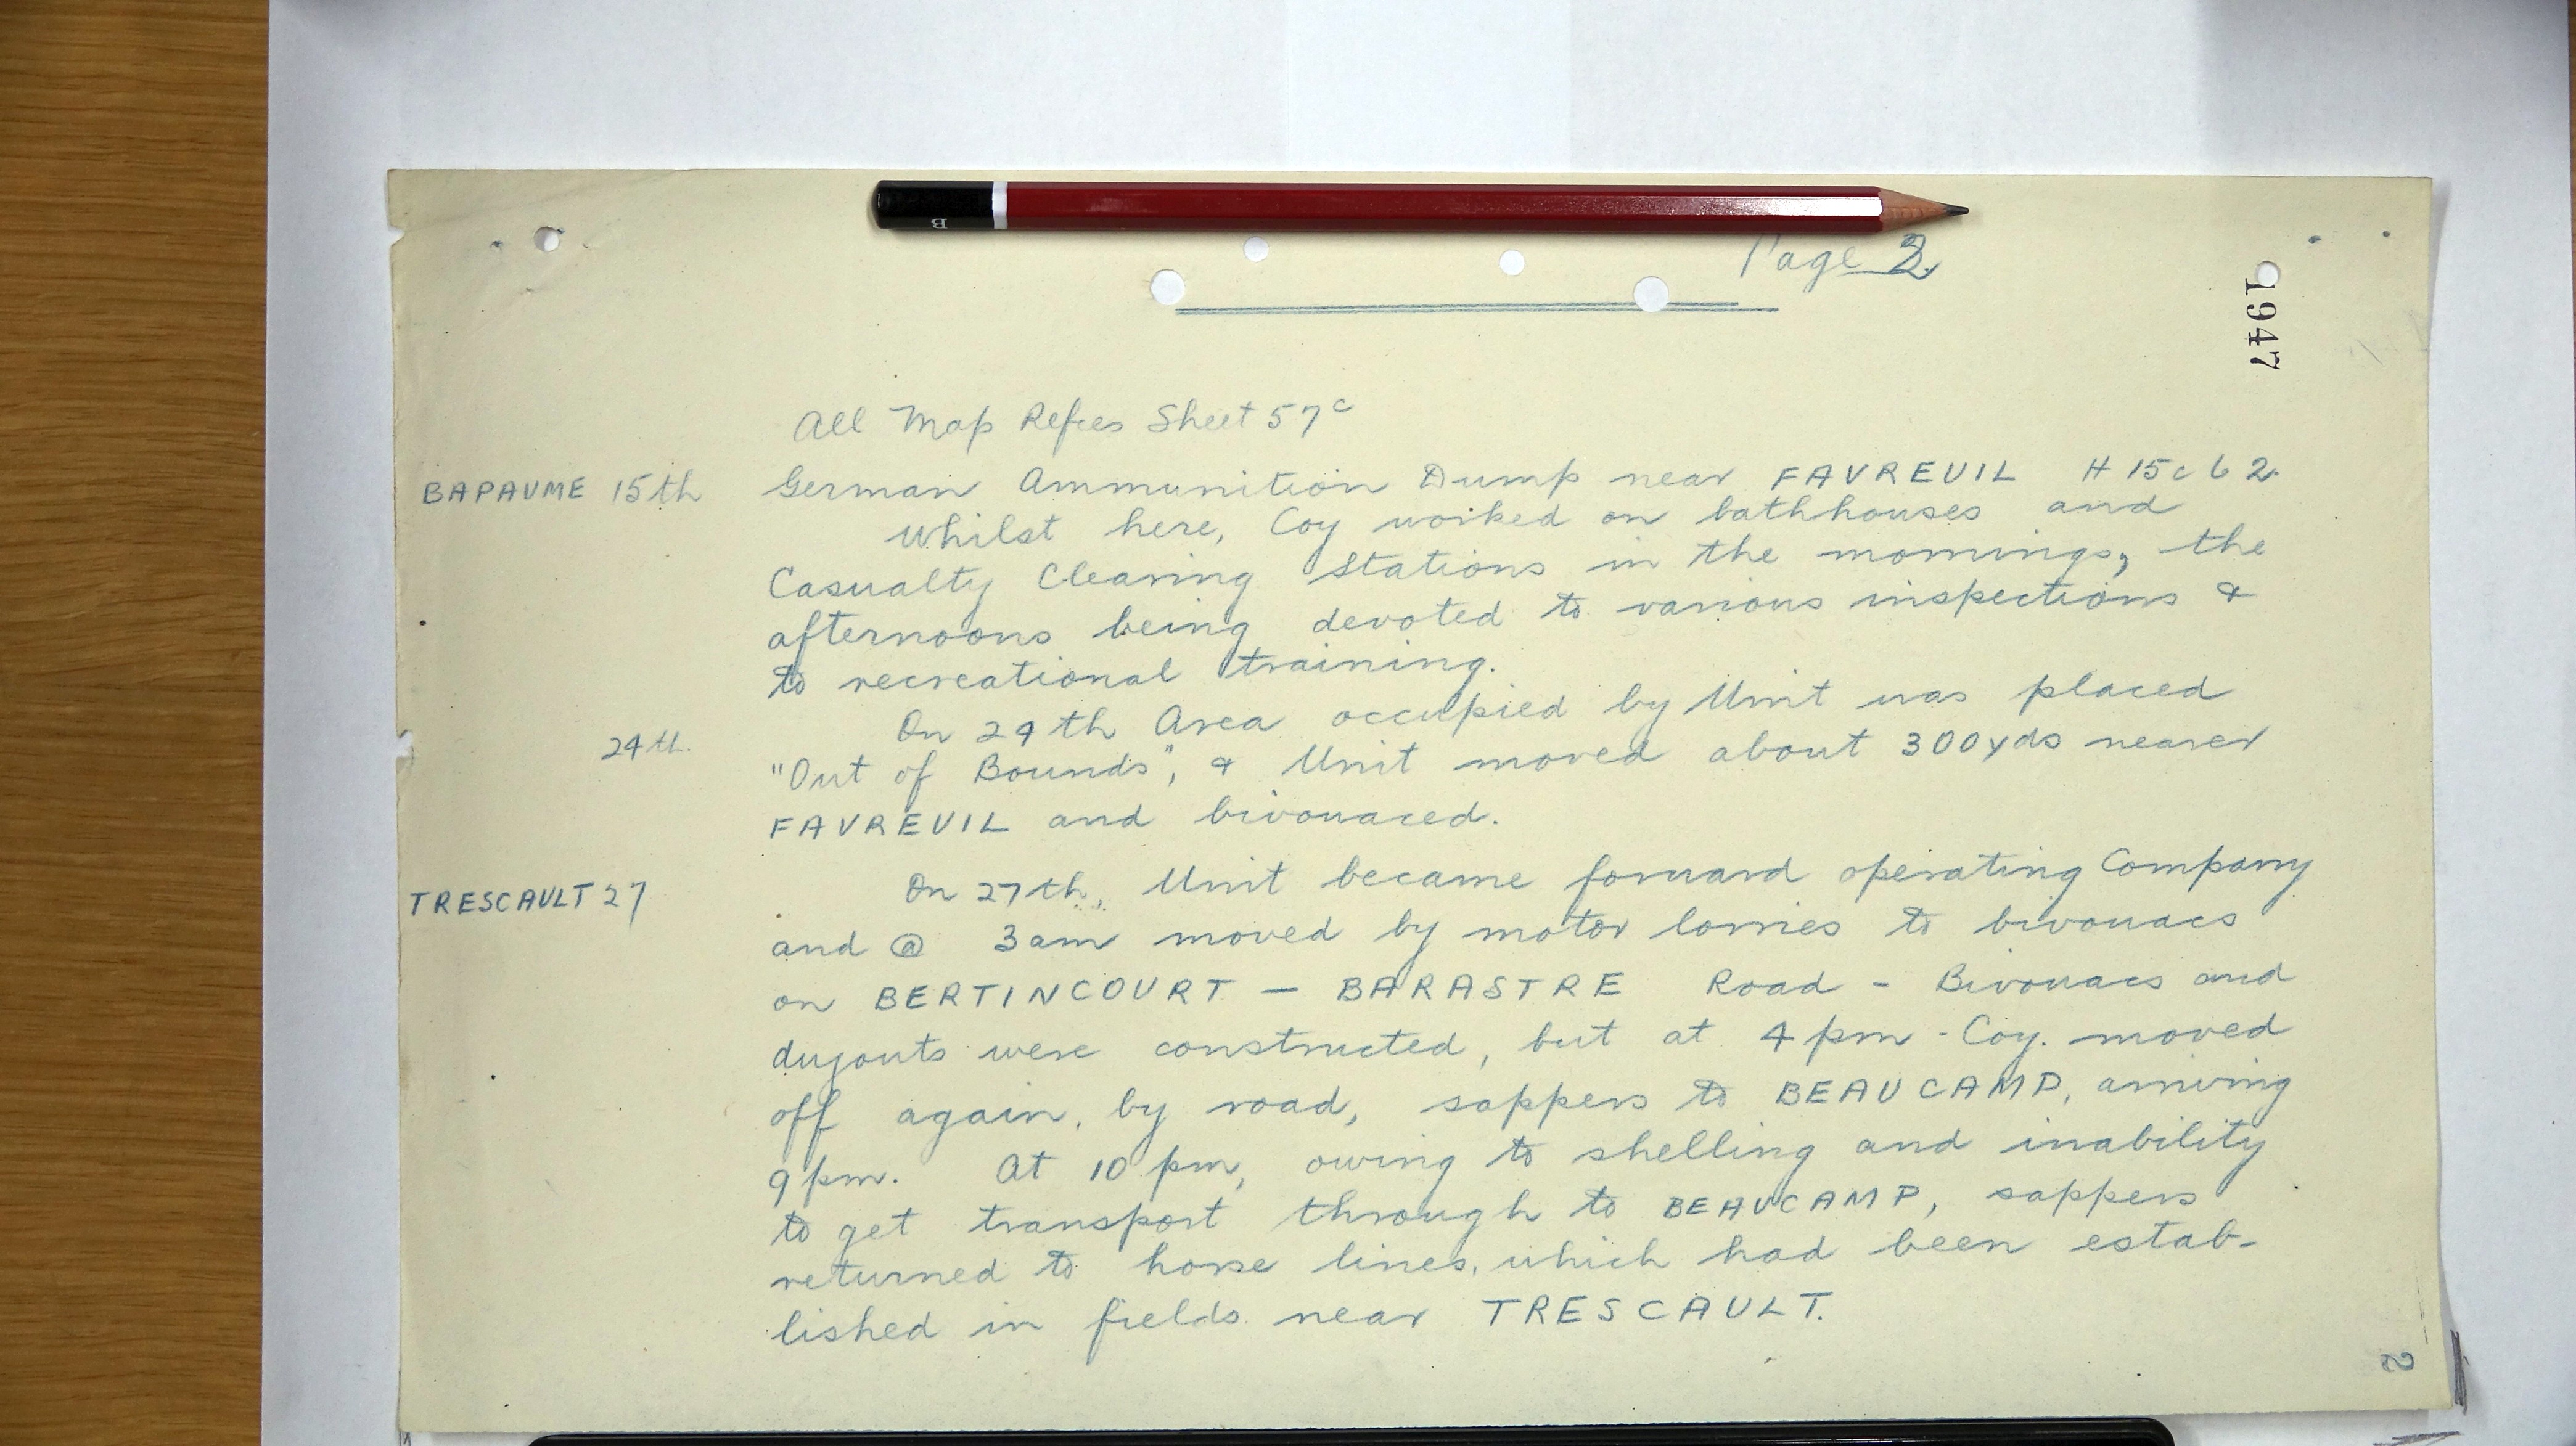 B
Page 2
1947
All Map Refces Sheet 57c
BAPAUME 15th German Ammunition Dump near FAVREUIL H 15 c 6 2.
Whilst here, Coy worked on bathhouses and
Casualty Clearing Stations in the mornings, the
afternoons being devoted to various inspections &
to recreational training.
24th. On 24th Area occupied by Unit was placed
"Out of Bounds", & Unit moved about 300yds nearer
FAVREUIL and bivouaced.
TRESCAULT 27 On 27th, Unit became forward operating Company
and @ 3am moved by motor lorries to bivouacs
on BERTINCOURT — BARASTRE Road - Bivouacs and
dugouts were constructed, but at 4pm - Coy. moved
off again, by road, sappers to BEAUCAMP, arriving
9pm. At 10 pm, owing to shelling and inability
to get transport through to BEAUCAMP, sappers
returned to horse lines, which had been estab-
lished in fields near TRESCAULT.
2